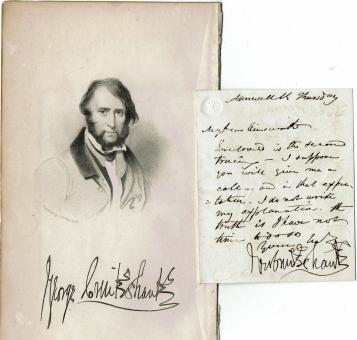 George Cruikshank
Hanwell Thursday
My Dear Ainsworth
Enclosed is the second
tracing — I suppose
you will give me a
call — and in that expec
tation I do not write
my explanation. the
truth is I have not
time to do so
Yours
Geo Cruikshank